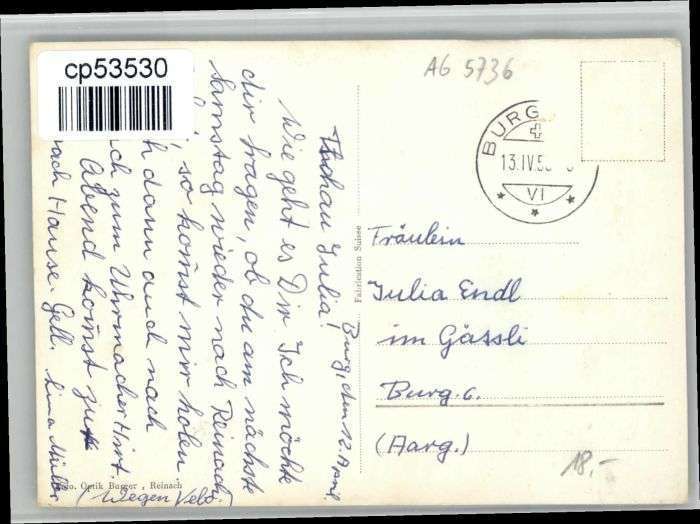 cp53530
AG 5736
BURG
13.IV.5
VI
Burg, den 12. April
Tschau Julia!
Wie geht es Dir Ich möchte
dir fragen, ob du am nächste
Samstag wieder nach Reinach
so komst mir holen
dann auch nach
zum Uhrmacher Hirt.
Abend komst zu
nach Hause. Gell. Lina Müller
(Wegen Velo.)
Fabrication Suisse
Fräulein
Julia Endl
im Gässli
Burg.
(Aarg.)
18.-
Optik Burger, Reinach